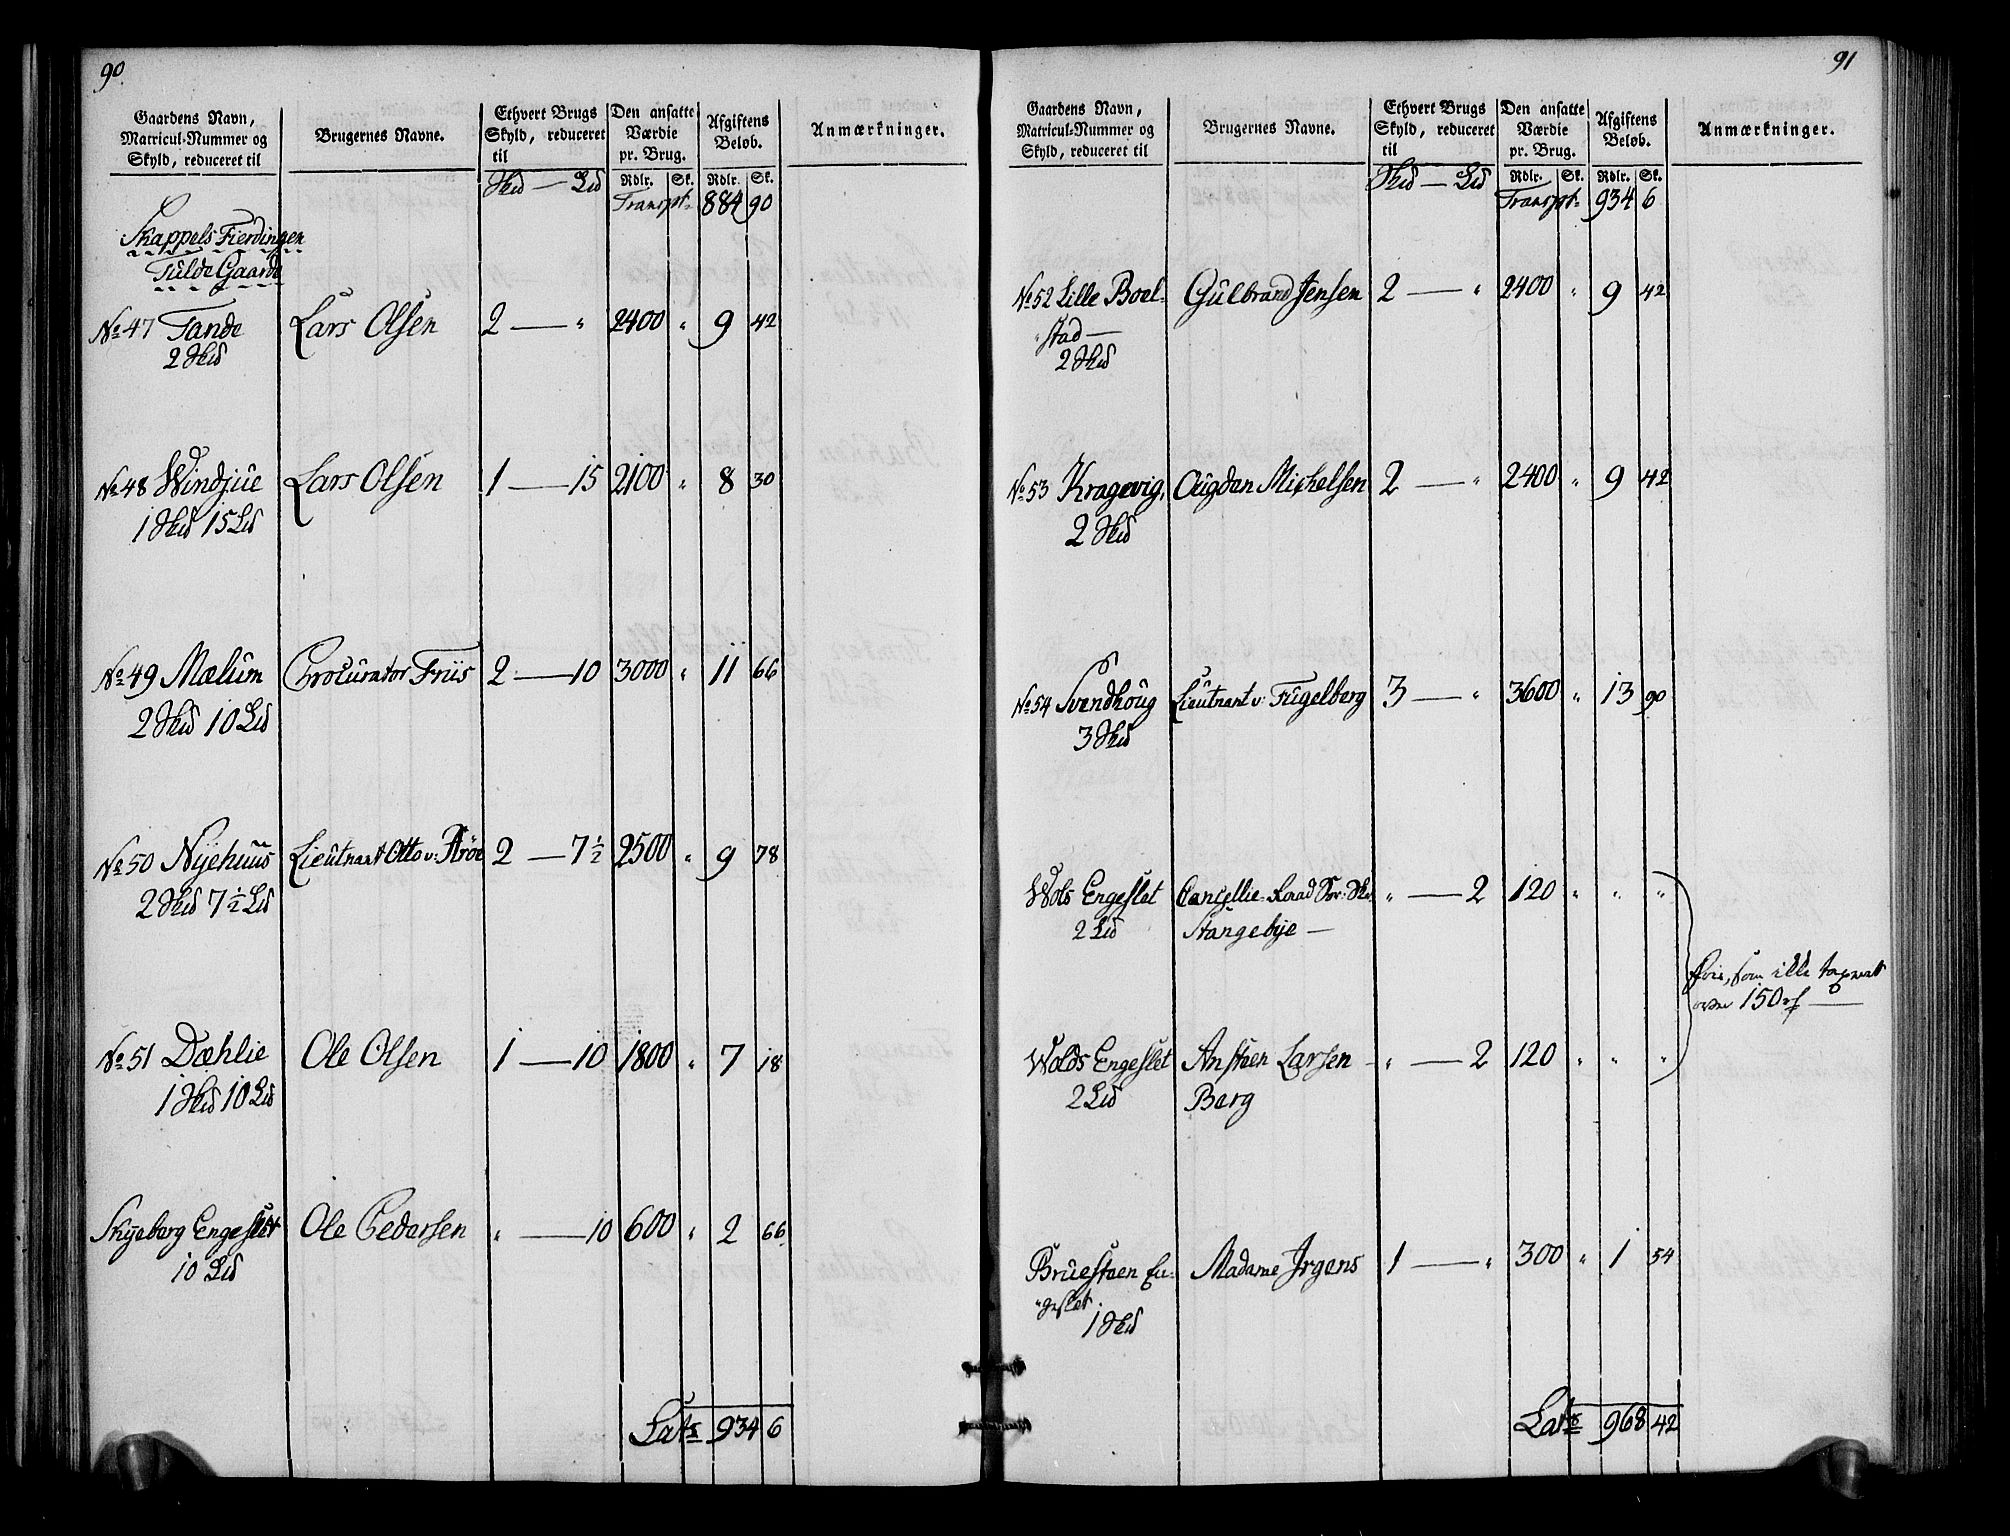 90
Gaardens Navn, Matricul-Nummer og Skyld, reduceret til | Brugernes Navne. | Ethvert Brugs Skyld, reduceret til | Den ansatte Værdie pr. Brug. | Afgiftens Beløb. | Anmærkninger.
Skd — Ld | Rdlr. | Sk. | Rdlr. | Sk.
Transpt: 884 90
Skappels Fierdingen
Fulde Gaarde
No 47 Tande | Lars Olsen | 2 — " | 2400 | " | 9 | 42
2 Skd
No 48 Windjue | Lars Olsen | 1 — 15 | 2100 | " | 8 | 30
1 Skd 15 Ld
No 49 Mælum | Procurator Friis | 2 — 10 | 3000 | " | 11 | 66
2 Skd 10 Ld
No 50 Nÿehuus | Lieutnant Otto v: | 2 — 7½ | 2500 | " | 9 | 78
2 Skd 7½ Ld
No 51 Dæhlie | Ole Olsen | 1 — 10 | 1800 | " | 7 | 18
1 Skd 10 Ld
Skÿeberg Engeslet | Ole Pedersen | " — 10 | 600 | " | 2 | 66
10 Ld
Lats 934 6
91
Gaardens Navn, Matricul-Nummer og Skyld, reduceret til | Brugernes Navne. | Ethvert Brugs Skyld, reduceret til | Den ansatte Værdie pr. Brug. | Afgiftens Beløb. | Anmærkninger.
Skd — Ld | Rdlr. | Sk. | Rdlr. | Sk.
Transpt: 934 6
No 52 Lille Boel- | Gulbrand Jensen | 2 — " | 2400 | " | 9 | 42
"stad —
2 Skd
No 53 Kragevig, | Augden Michelsen | 2 — " | 2400 | " | 9 | 42
2 Skd
No 54 Svendhoug | Lieutnant v: Fugelberg | 3 — " | 3600 | " | 13 | 90
3 Skd
Wols Engeslet | Cancellie-Raad Sor: Skr: | " — 2 | 120 | " | " | "
2 Ld | Stangebÿe —
frie, som ikke taxeret
over 150 rd —
Wolds Engeslet | Ansteen Larsen | " — 2 | 120 | " | " | "
2 Ld | Berg
Bruesteen En- | Madame Irgens | 1 — " | 300 | " | 1 | 54
"geslet
1 Skd
Lats 968 42